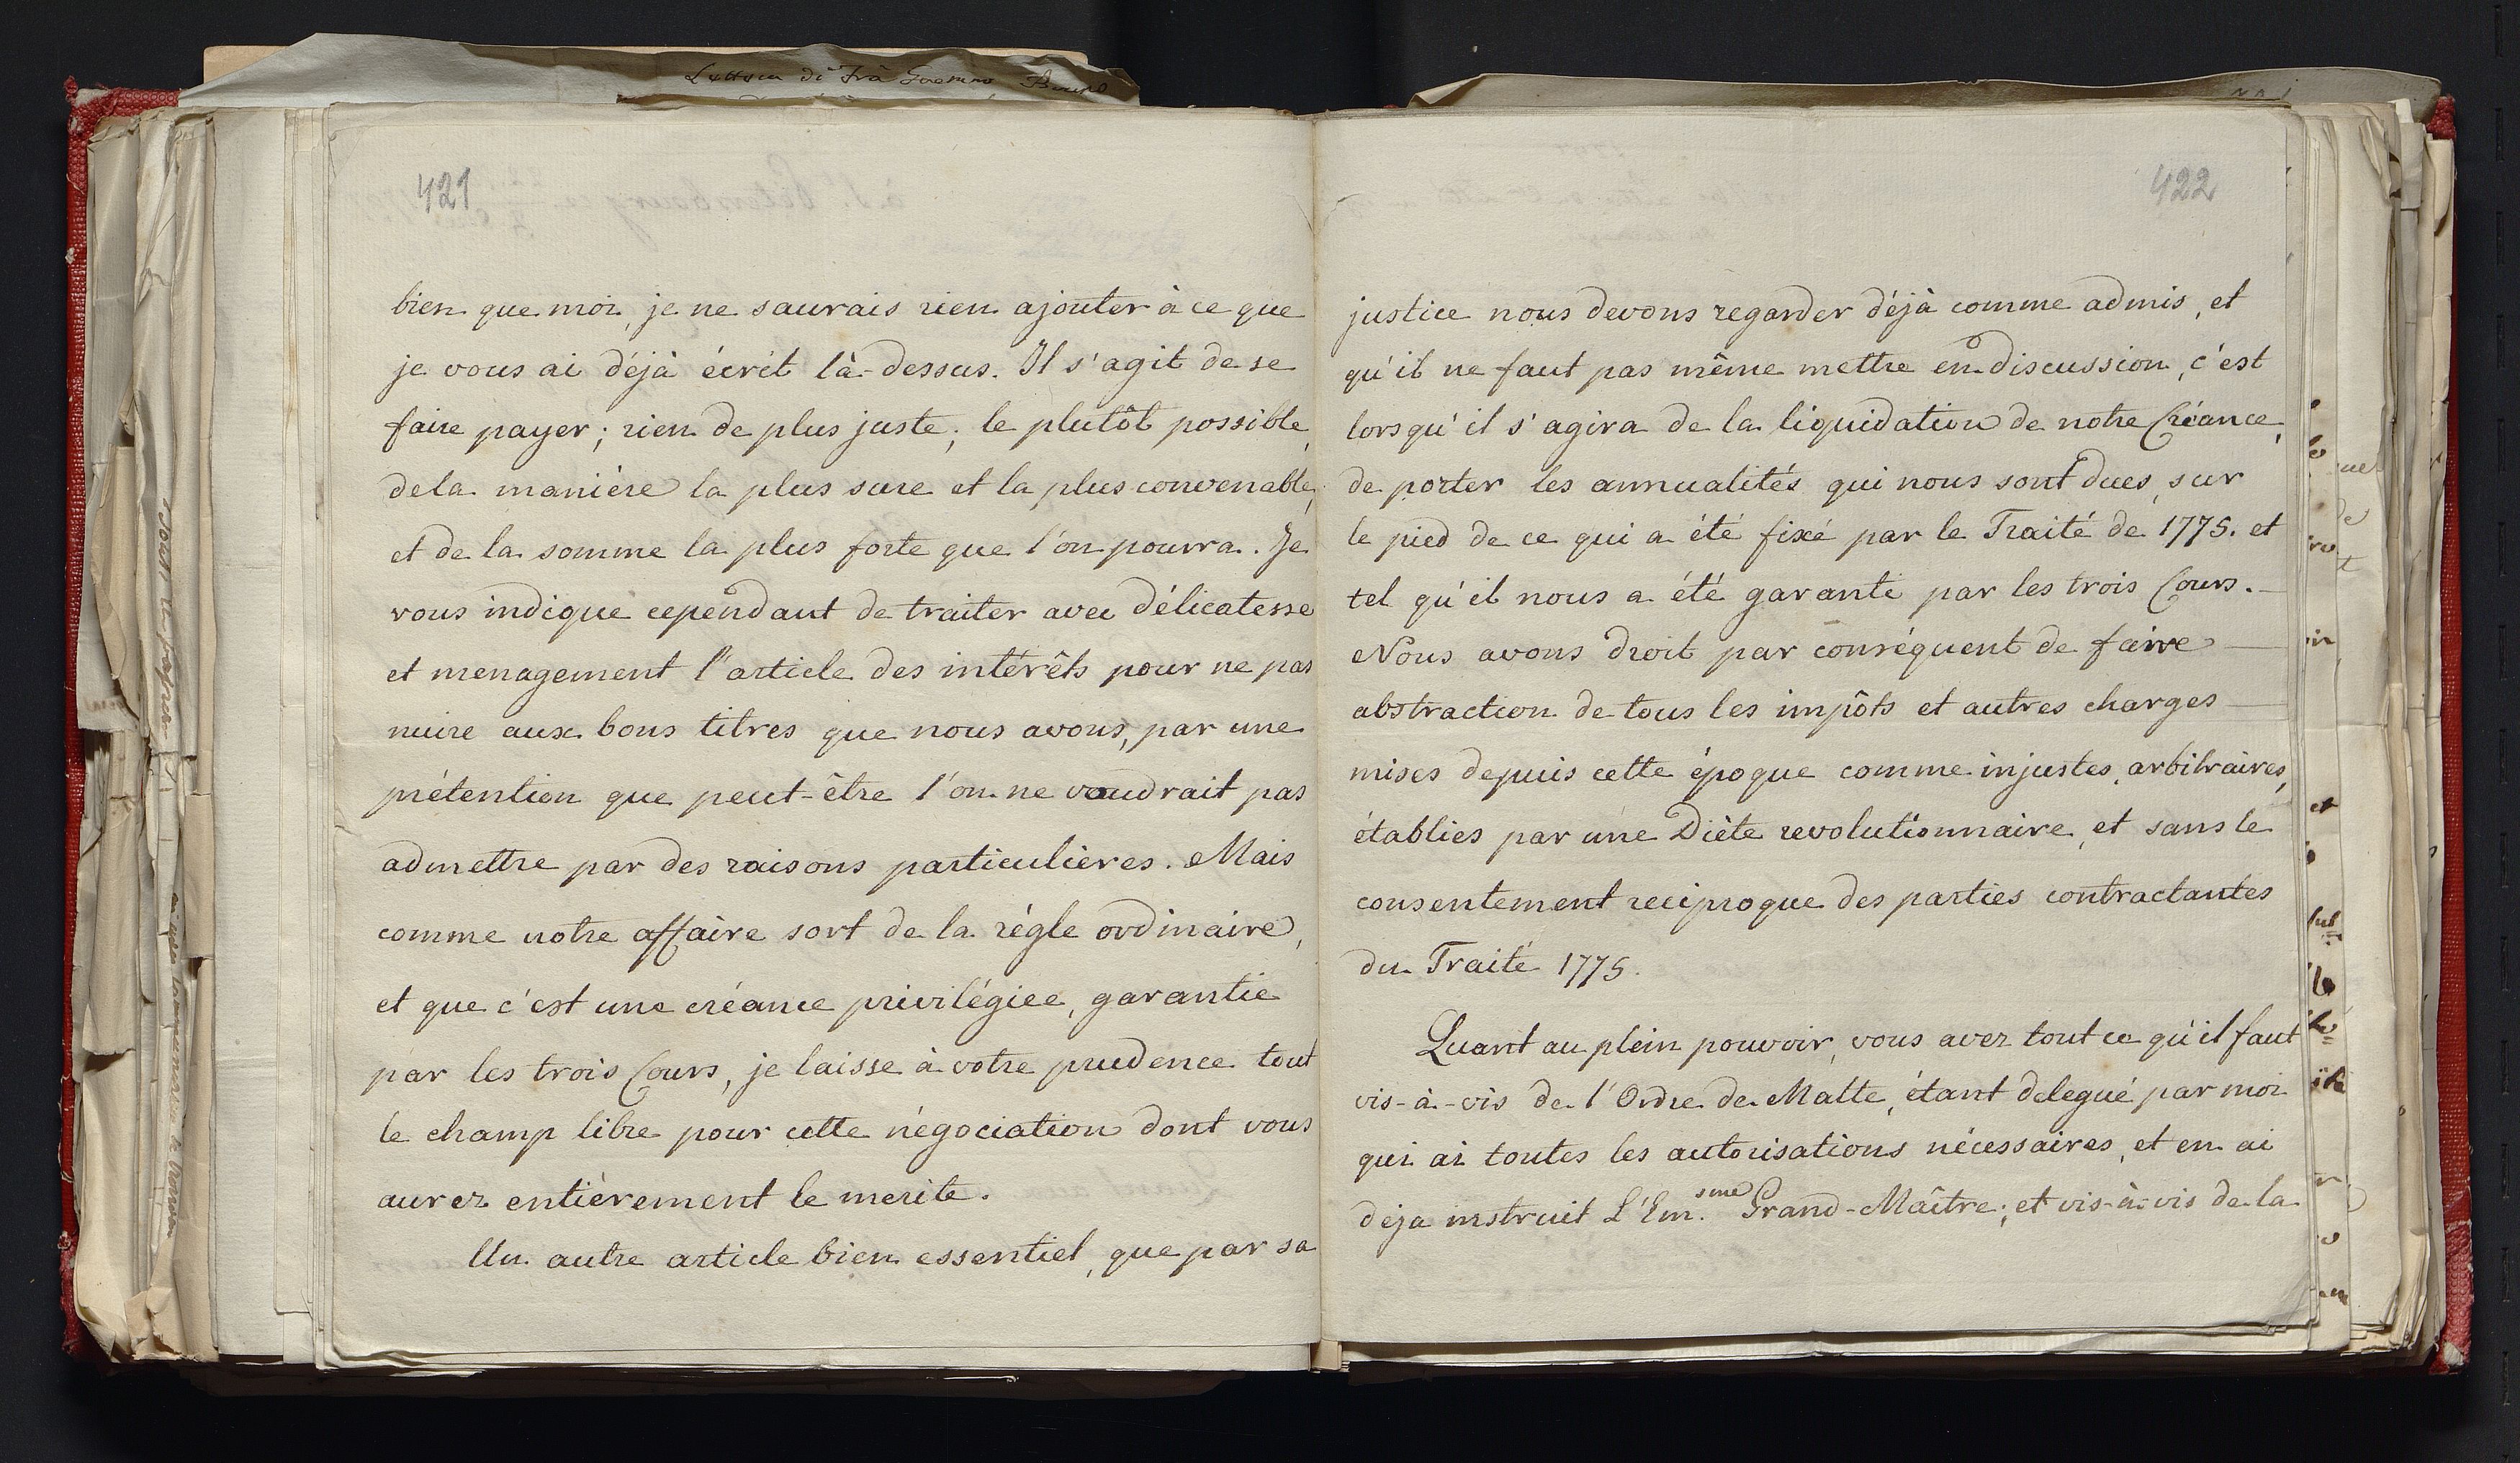 Lettera di Frà
421
bien que moi, je ne saurais rien ajouter à ce que
je vous ai déjà écrit là-dessus. Il s'agit de se
faire payer; rien de plus juste; le plutôt possible,
de la manière la plus sure et la plus convenable,
et de la somme la plus forte que l'on pourra. Je
vous indique cependant de traiter avec délicatesse
et menagement l'article des intérêts pour ne pas
nuire aux bons titres que nous avons, par une
prétention que peut-être l'on ne voudrait pas
admettre par des raisons particulières. Mais
comme notre affaire sort de la règle ordinaire,
et que c'est une créance privilégiee, garantie
par les trois Cours, je laisse à votre prudence tout
le champ libre pour cette négociation dont vous
aurez entièrement le merite.
Un autre article bien essentiel, que par sa
422
justice nous devons regarder déjà comme admis, et
qu'il ne faut pas même mettre en discussion, c'est
lorsqu'il s'agira de la liquidation de notre Créance,
de porter les annualités qui nous sont dues, sur
le pied de ce qui a été fixé par le Traité de 1775. et
tel qu'il nous a été garanti par les trois Cours. —
Nous avons droit par conséquent de faire —
abstraction de tous les impôts et autres charges —
mises depuis cette époque comme injustes, arbitraires,
établies par une Diète revolutionnaire, et sans le
consentement reciproque des parties contractantes
du Traité 1775.
Quant au plein pouvoir, vous avez tout ce qu'il faut
vis-à-vis de l'Ordre de Malte, étant delegué par moi
qui ai toutes les autorisations nécessaires, et en ai
deja instruit L'Em.sme Grand-Maître; et vis-à-vis de la